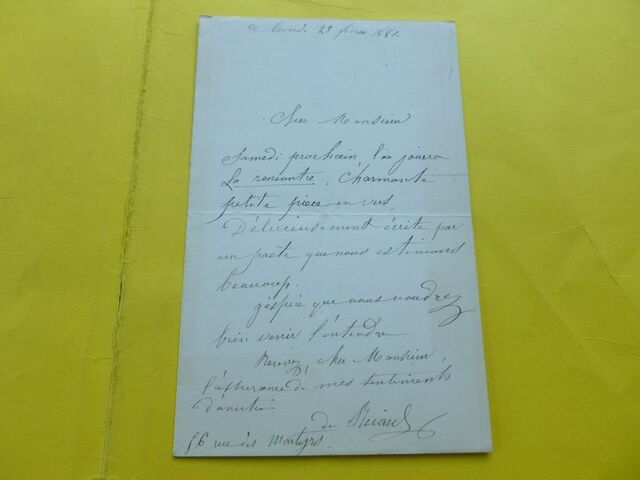 ce lundi 21 1881.
Cher Monsieur
Samedi prochain, l'on jouera
La rencontre, Charmante
petite pièce en vers
Délicieusement écrite par
un poète que nous estimons
beaucoup.
j'espère que vous voudrez
bien venir l'entendre
Recevez, cher Monsieur,
l'assurance de mes sentiments
d'amitié
de
56 rue des Martyrs.